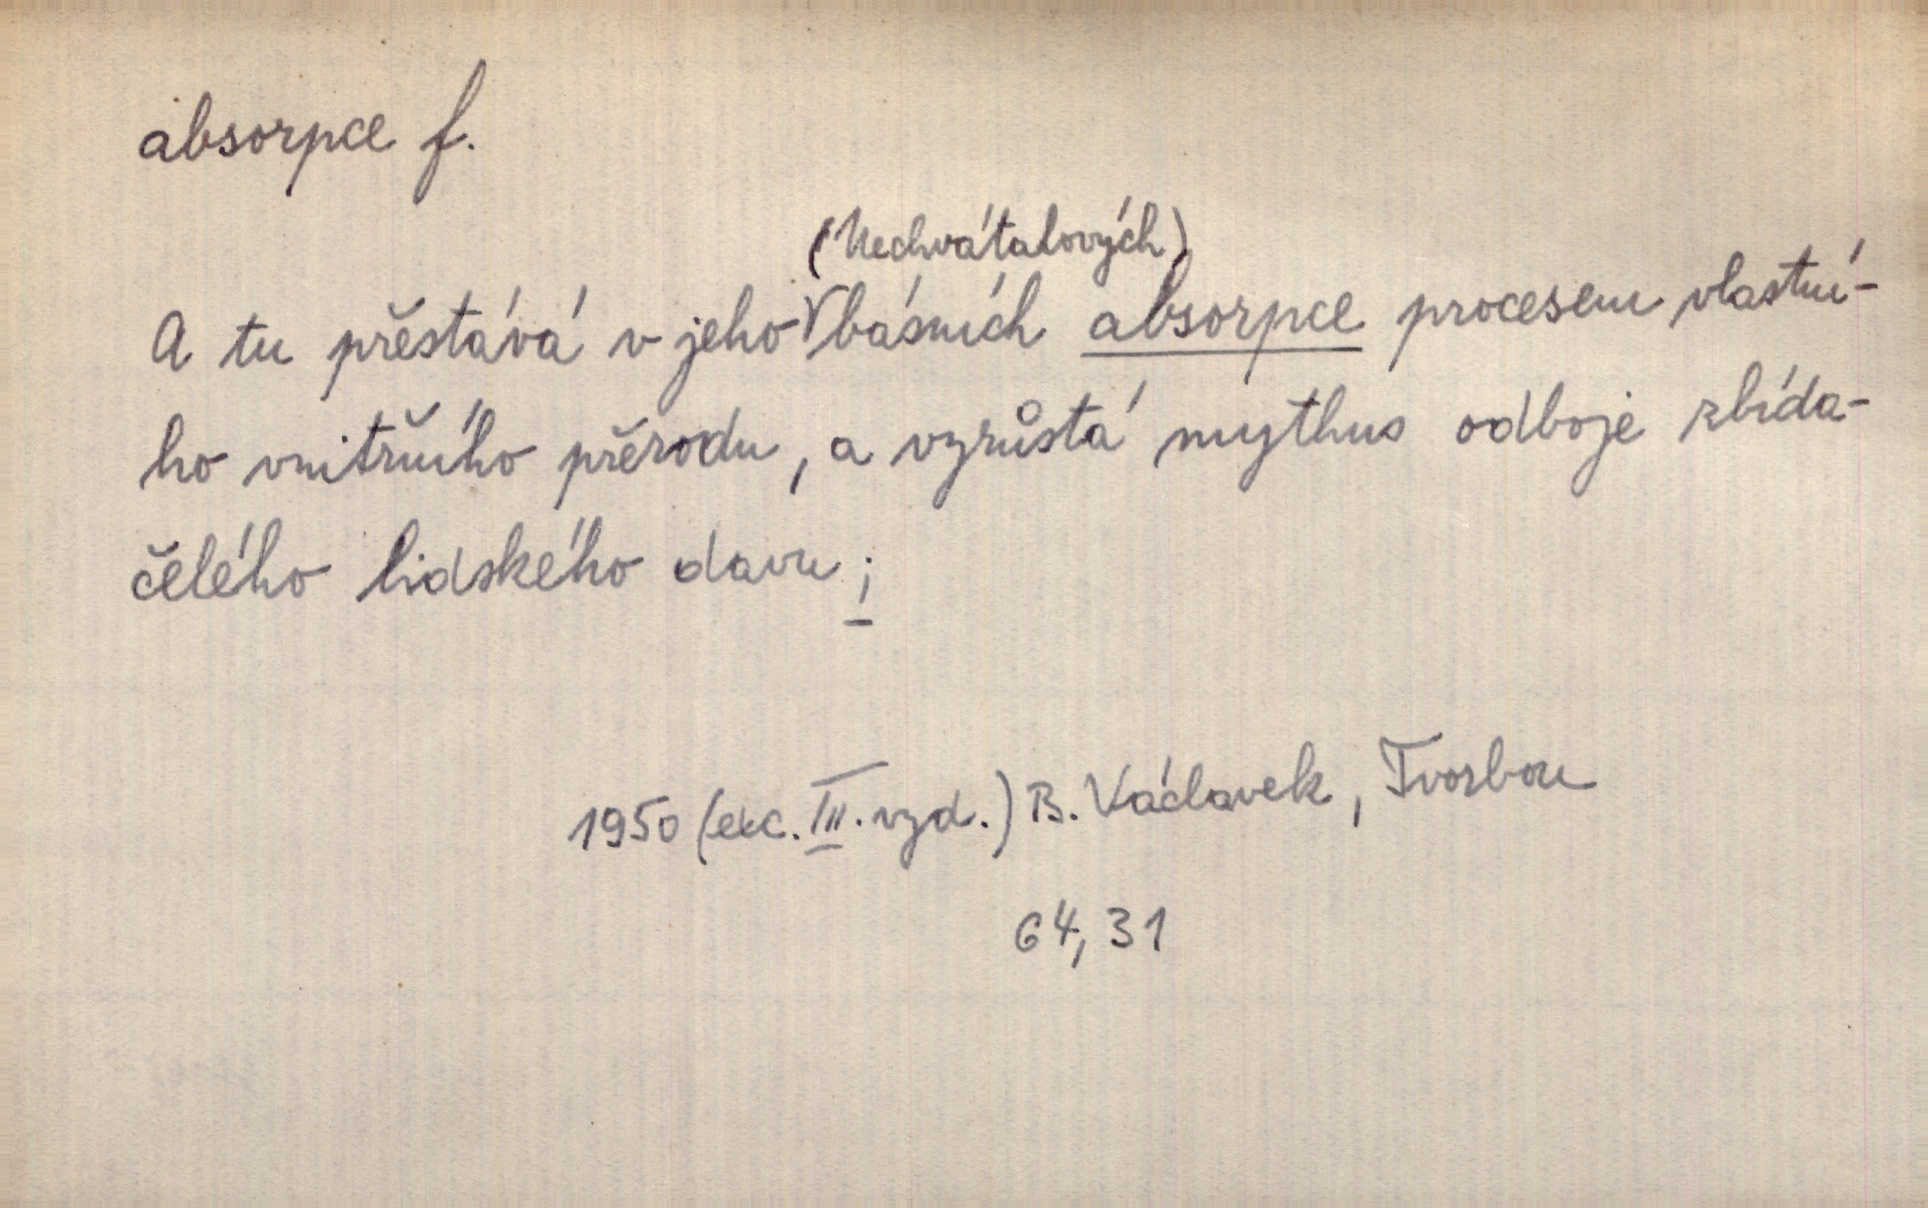 absorpce f.
(Nechvátalových)
A tu přestává v jeho básních absorpce procesem vlastní-
ho vnitřního přerodu, a vzrůstá mythus odboje zbída-
čelého lidského davu;
1950 (exc. III. vyd.) B. Václavek, Tvorbou
64, 31